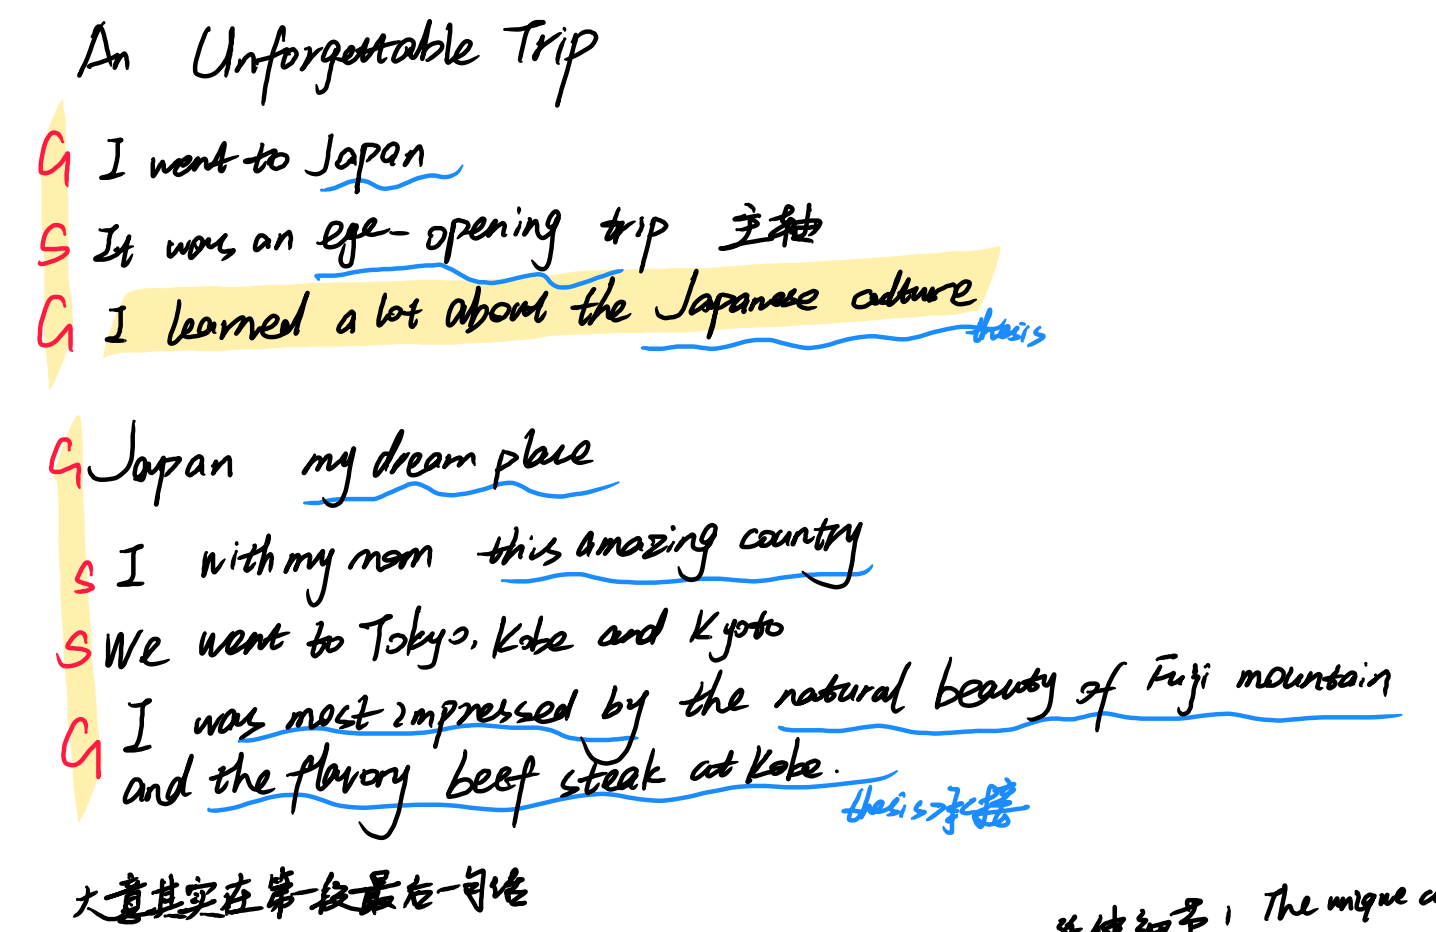 An Unforgettable Trip
G I went to Japan
S It was an eye-opening trip 主轴
G I learned a lot about the Japanese culture
thesis
G Japan my dream place
S I with my mom this amazing country
S We went to Tokyo, Kobe and Kyoto
G I was most impressed by the natural beauty of Fuji mountain
and the flavory beef steak at Kobe.
thesis>承接
大意其实在第一段最后一句话
细节, The unique